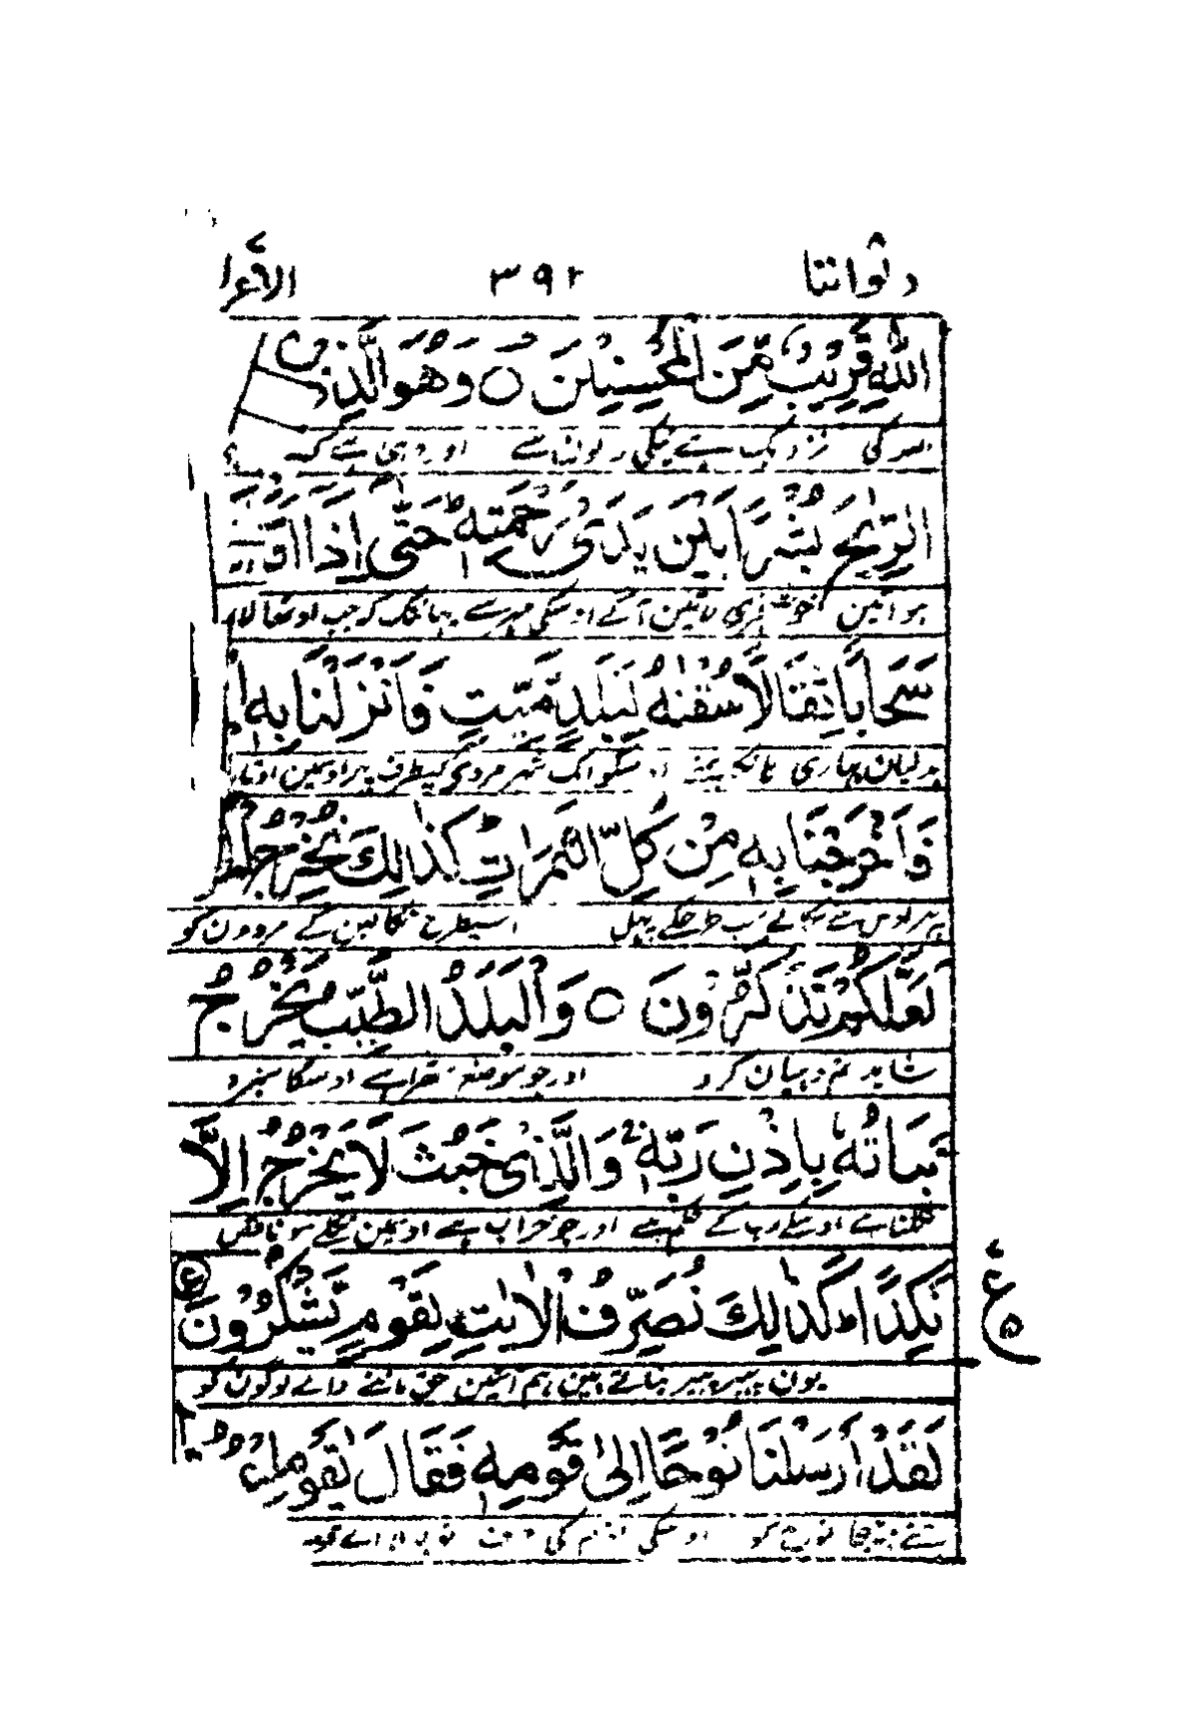 ولواننا ٨ ٣٩٢ الاعرا ٧
اللّٰهِ قَرِيْبٌ مِّنَ الْمُحْسِنِيْنَ ۝ وَهُوَ الَّذِيْ
نزدیک ہے نیکی والون سے اور وہی ہے کہ
الرِّيٰحَ بُشْرًا بَيْنَ يَدَيْ رَحْمَتِهٖ ؕ حَتّٰى اِذَا اَقَ
ہوائین خوشخبری لاتین آگے اوسکی مہر سے یہانتک کہ جب اوٹھا لا
سَحَابًا ثِقَالًا سُقْنٰهُ لِبَلَدٍ مَّيِّتٍ فَاَنْزَلْنَا بِهِ ا
بدلیان بھاری ہانکا ہمنے اوسکو ایک شہر مردے کیطرف پھر اوسمین اوتا
فَاَخْرَجْنَا بِهٖ مِنْ كُلِّ الثَّمَرٰتِ ؕ كَذٰلِكَ نُخْرِجُ
پھر اوس سے نکالے سب طرحکے پھل اسیطرح نکالین گے مردون کو
لَعَلَّكُمْ تَذَكَّرُوْنَ ۝ وَالْبَلَدُ الطَّيِّبُ يَخْرُجُ
شاید تم دہیان کرو اور جو موضع ستھرا ہے اوسکا سبزہ
نَبَاتُهٗ بِاِذْنِ رَبِّهٖ ۚ وَالَّذِيْ خَبُثَ لَا يَخْرُجُ اِلَّا
نکلتا ہے اوسکے رب کے حکم سے اور جو خراب ہے اوسمین نکلے سو ناقص
نَكِدًا ؕ كَذٰلِكَ نُصَرِّفُ الْاٰيٰتِ لِقَوْمٍ يَّشْكُرُوْنَ ع
یون پھیر پھیر بتاتے ہین ہم آیتین حق ماننے والے لوگون کو
لَقَدْ اَرْسَلْنَا نُوْحًا اِلٰى قَوْمِهٖ فَقَالَ يٰقَوْمِ
ہمنے بھیجا نوح کو اوسکی قوم کی طرف تو بولا اے قوم